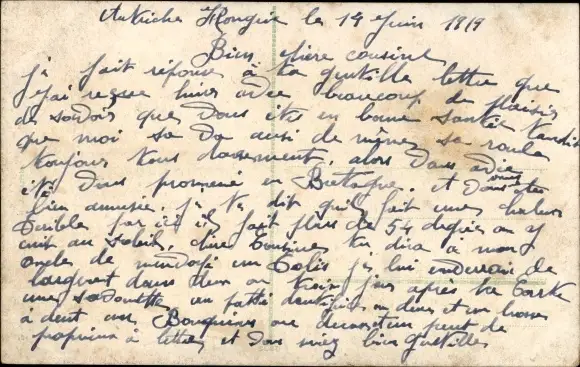 Autriche Hongrie le 14 Juin 1919
Bien chère cousine
je fait réponse à ta gentille lettre que
j'ai reçue hier avec beaucoup de plaisir
de savoir que vous êtes en bonne santé tandis
que moi sa va aussi de même, sa roule
toujours tout doucement, alors vous avie
été vous promené en Bretagne, et vous êtes
bien amusée, je te dit qu'il fait une chaleur
terrible par ici il fait plus de 54 degrés on y
cuit au soleil, chère Cousine tu dira à mon
oncle de m'envoyé un Colis je lui enverrai de
l'argent dans deux ou trois jour après la carte
une savonette, un patte dentifrice
à dent un
papier à lettres et vous serez bien gentilles